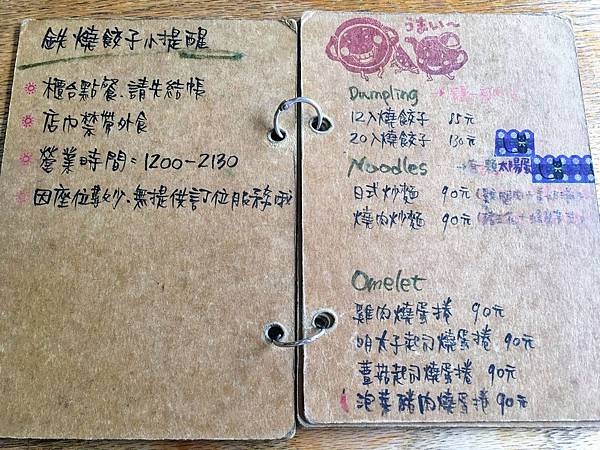 鉄燒餃子小提醒
櫃台點餐、請先結帳
店內禁帶外食
營業時間:1200-2130
因座位較少、無提供訂位服務哦
うまい~
Dumpling
12入燒餃子 85元
20入燒餃子 130元
Noodles → 太陽蛋
日式炒麵 90元
燒肉炒麵 90元
Omelet
雞肉燒蛋捲 90元
明太子起司燒蛋捲 90元
蘑菇起司燒蛋捲 90元
泡菜豬肉燒蛋捲 90元